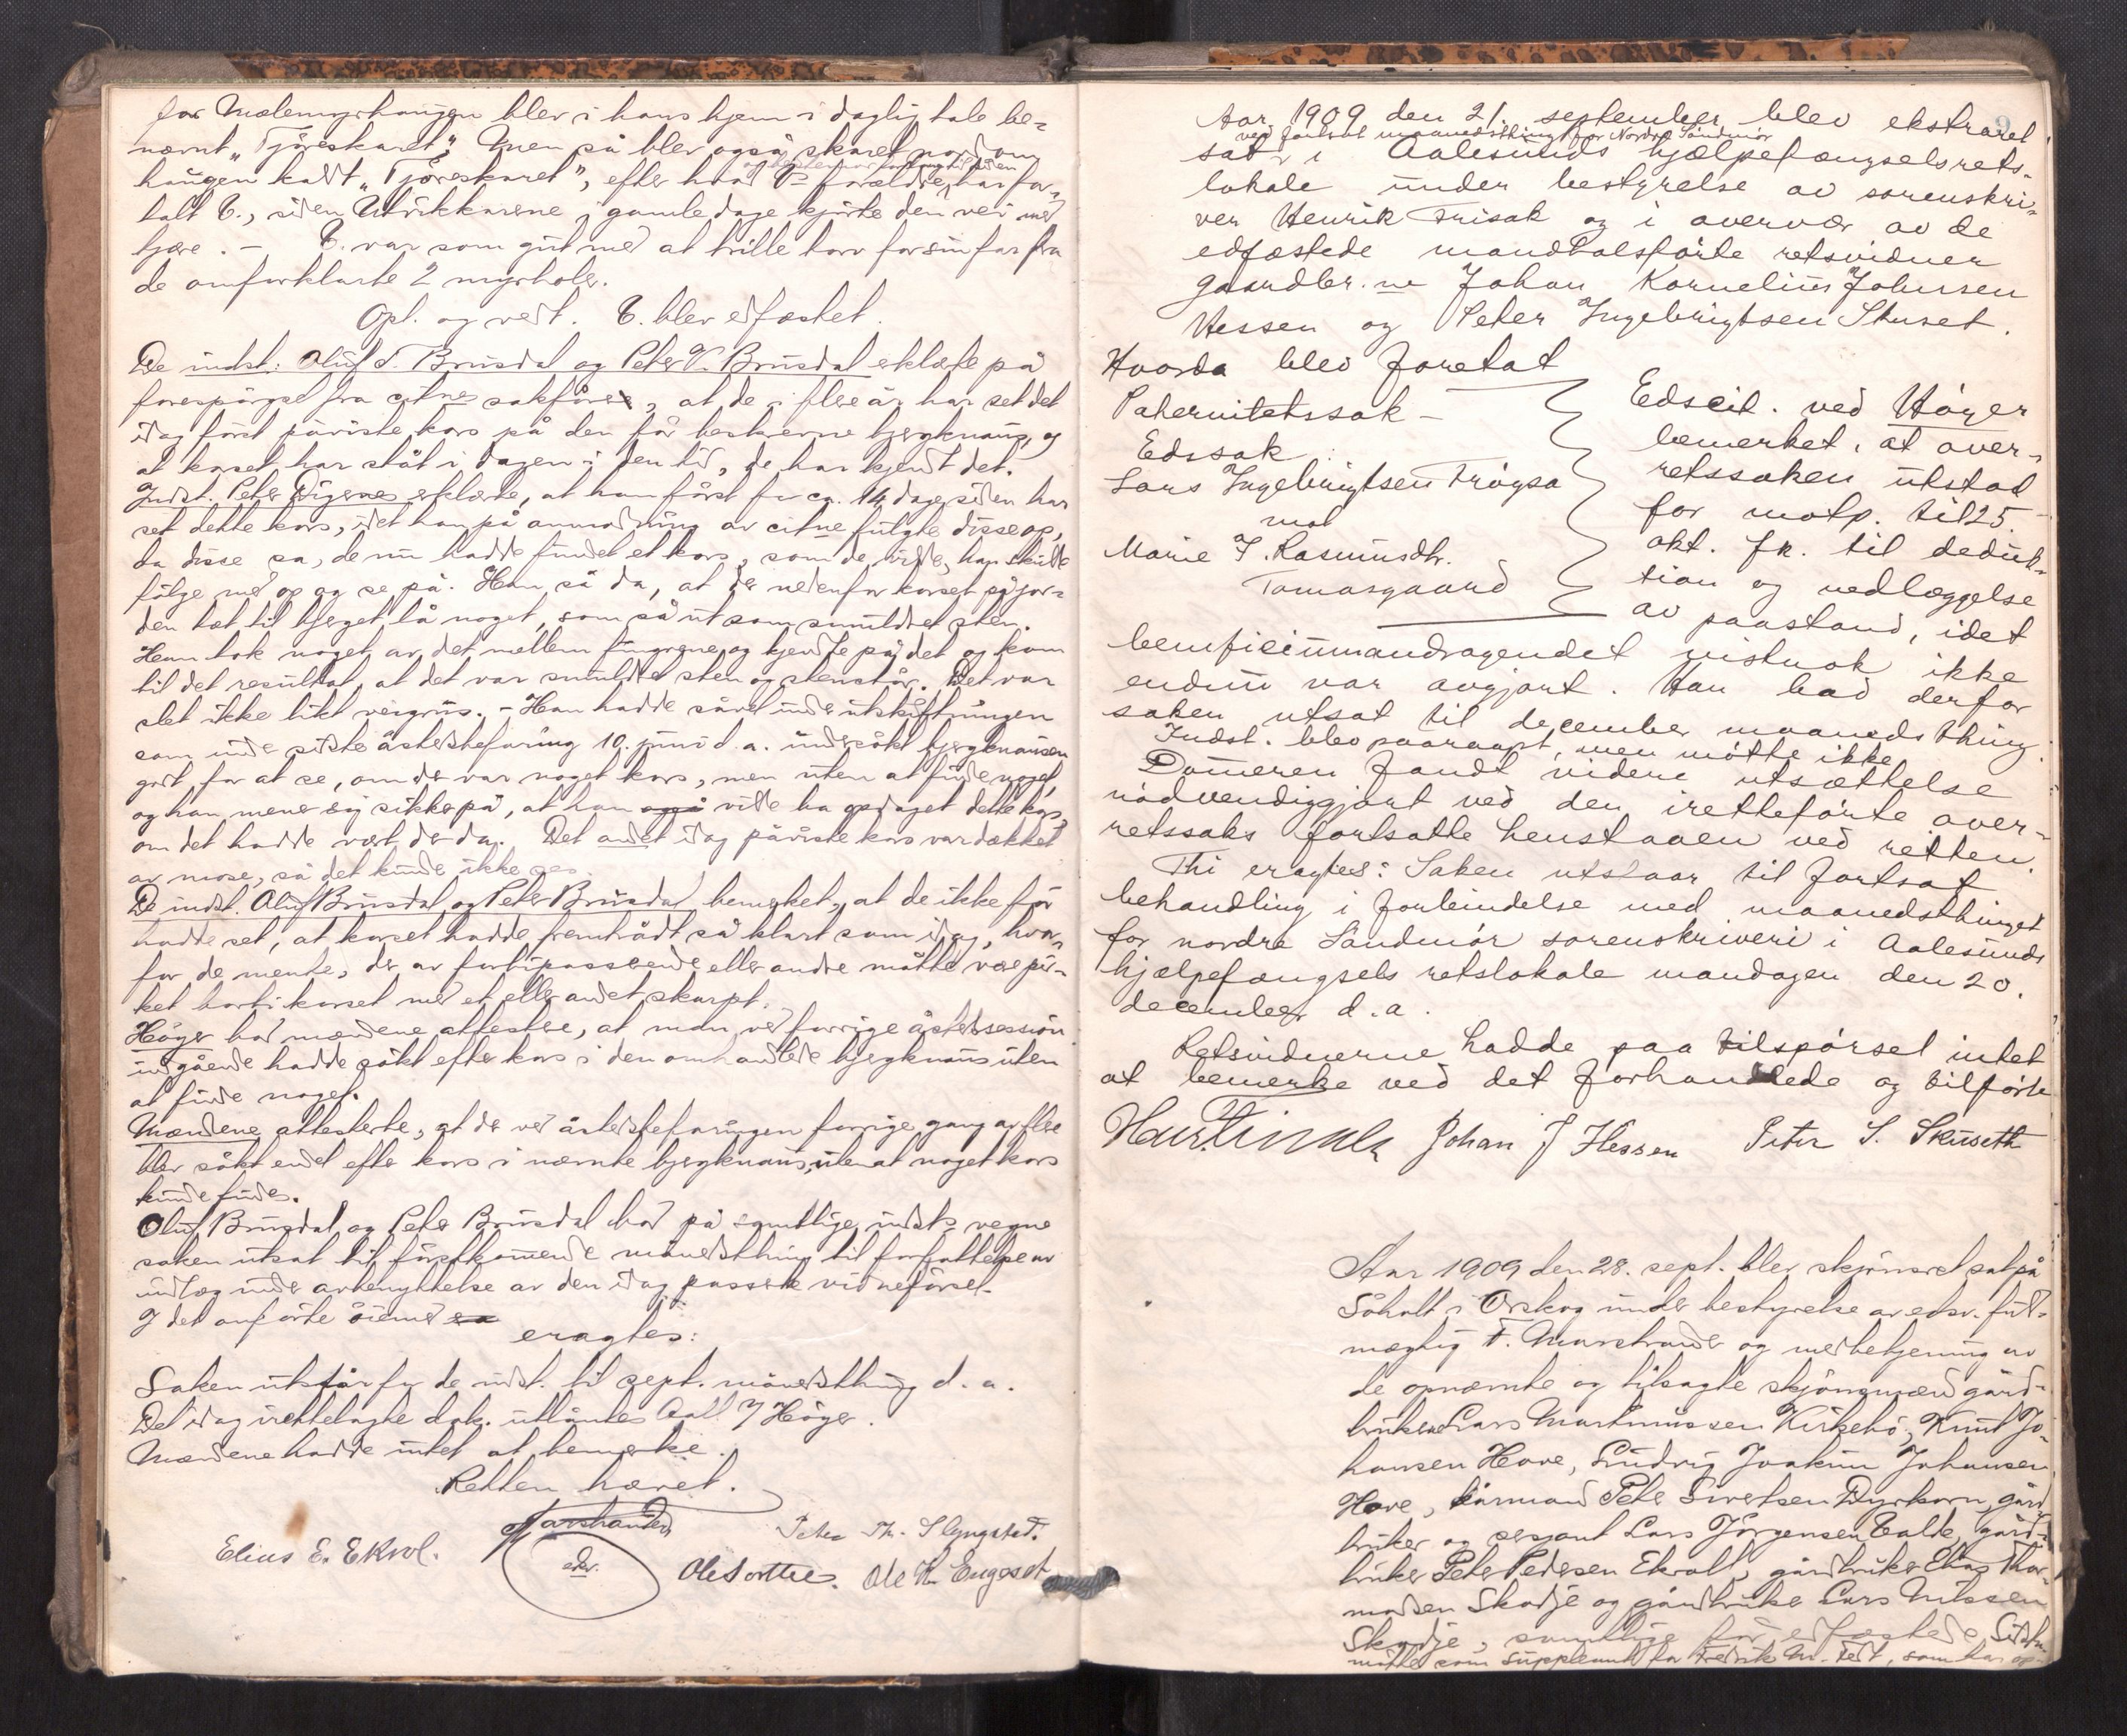 for Mælemyrhaugen blev i hans hjem i daglig tale be-
nævnt „Tjöreskaret“. Men så blev også skaret nord om
haugen kaldt „Tjöreskaret“, efter hvad V's forældre har for-
talt V., siden Utvikkarene i gamle dage kjörte den vei med
tjære. — V. var som gut med at trille torv for sin far fra
de omforklarte 2 myrholer.
Opl. og vedt. V. blev edfæstet.
De indst. Oluf T. Brusdal og Peter V. Brusdal erklærte på
forespörgsel fra citnes sakförer, at de i flere år har set det
idag först påviste kors på den för beskrevne bjergknaus, og
at korset har ståt i dagen i den tid, de har kjendt det.
Indst. Peter Digernes erklærte, at han först for ca. 14 dage siden har
set dette kors, idet han på anmodning av citne fulgte disse op,
da disse sa, de nu hadde fundet et kors, som de vilde, han skulde
fölge med op og se på. Han så da, at der nedenfor korset på jor-
den tæt til bjerget lå noget, som så ut som smuldret sten.
Han tok noget av det mellem fingrene og kjendte på det og kom
til det resultat, at det var smuldret sten og stenstöv. Det var
slet ikke likt veigrus. — Han hadde såvel under utskiftningen
som under sidste åstedsbefaring 10. juni d. a. undersökt bjergknausen
godt for at se, om der var noget kors, men uten at finde noget,
og han mener sig sikker på, at han også vilde ha opdaget dette kors,
om det hadde vært der da. Det andet idag påviste kors var dækket
av mose, så det kunde ikke sees.
De indst. Oluf Brusdal og Peter Brusdal bemerket, at de ikke för
hadde set, at korset hadde fremtrådt så klart som idag, hvor-
for de mente, der av forbipasserende eller andre måtte være pir-
ket bort i korset med et eller andet skarpt.
Höyer bad mændene attestere, at man ved forrige åstedssession
indgående hadde sökt efter kors i den omhandlede bjergknaus uten
at finde noget.
Mændene attesterte, at der ved åstedsbefaringen forrige gang av flere
blev sökt endel efter kors i nævnte bjergknaus, uten at noget kors
kunde findes.
Oluf Brusdal og Peter Brusdal bad på samtlige indst.s vegne
saken utsat til förstkommende månedsthing til forfattelse av
indlæg under avbenyttelse av den idag passerte vidneförsel.
I det anförte öiemed
eragtes:
Saken utstår for de indst. til sept. månedsthing d. a.
Det idag irettelagte dok. utlåntes Aall & Höyer.
Mændene hadde intet at bemerke.
Retten hævet.
Marstrander
edsv.
Peter Th. Slyngstad.
Elias E. Ekrol.
Ole Sortte. Ole K. Engeset
Aar 1909 den 21. september blev ekstraret
ved fortsat maanedsthing for Nordre Söndmör
sat i Aalesunds hjælpefængselsrets-
lokale under bestyrelse av sorenskri-
ver Henrik Finsak og i overvær av de
edfæstede mandtalsförte retsvidner
gaardbr.ne Johan Kornelius Johnsen
Hessen og Peter Ingebrigtsen Skuset.
Hvorda blev foretat
Paternitetssak —
Edssak:
Lars Ingebrigtsen Frögsa
mot
Marie J. Rasmusdtr.
Tomasgaard
Edscit. ved Höyer
bemerket, at over-
retssaken utstod
for motp. til 25.
okt. fk. til deduk-
tion og vedlæggelse
av paastand, idet
beneficiumandragendet vistnok ikke
endnu var avgjort. Han bad derfor
saken utsat til december maanedsthing.
Indst. blev paaraapt, men mötte ikke.
Dommeren fandt videre utsættelse
nödvendiggjort ved den iretteförte over-
retssaks fortsatte henstaaen ved retten.
Thi eragtes: Saken utstaar til fortsat
behandling i forbindelse med maanedsthinget
for nordre Söndmör sorenskriveri i Aalesunds
hjælpefængsels retslokale mandagen den 20.
december d. a.
Retsvidnerne hadde paa tilspörsel intet
at bemerke ved det forhandlede og tilförte
Johan J Hessen Peter I. Skuseth
Aar 1909 den 28. sept. blev skjönsret sat på
Söholt i Örskog under bestyrelse av edsv. fuld-
mægtig F. Marstrander og med betjening av
de opnævnte og tilsagte skjönsmænd gård-
brukerne Lars Martinussen Kirkebö, Knut Jo-
hansen Hove, Ludvig Joakim Johansen
Hove, kårmand Peter Sivertsen Dyrkorn, gård-
bruker og sersjant Lars Jörgensen Valde, gård-
bruker Peter Pedersen Ekroll, gårdbruker Elias Thor-
modsen Skodje og gårdbruker Lars Nilssen
Skodje, samtlige för edfæstede. Sidstn.
mötte som suppleant for Fredrik M. , som har op-